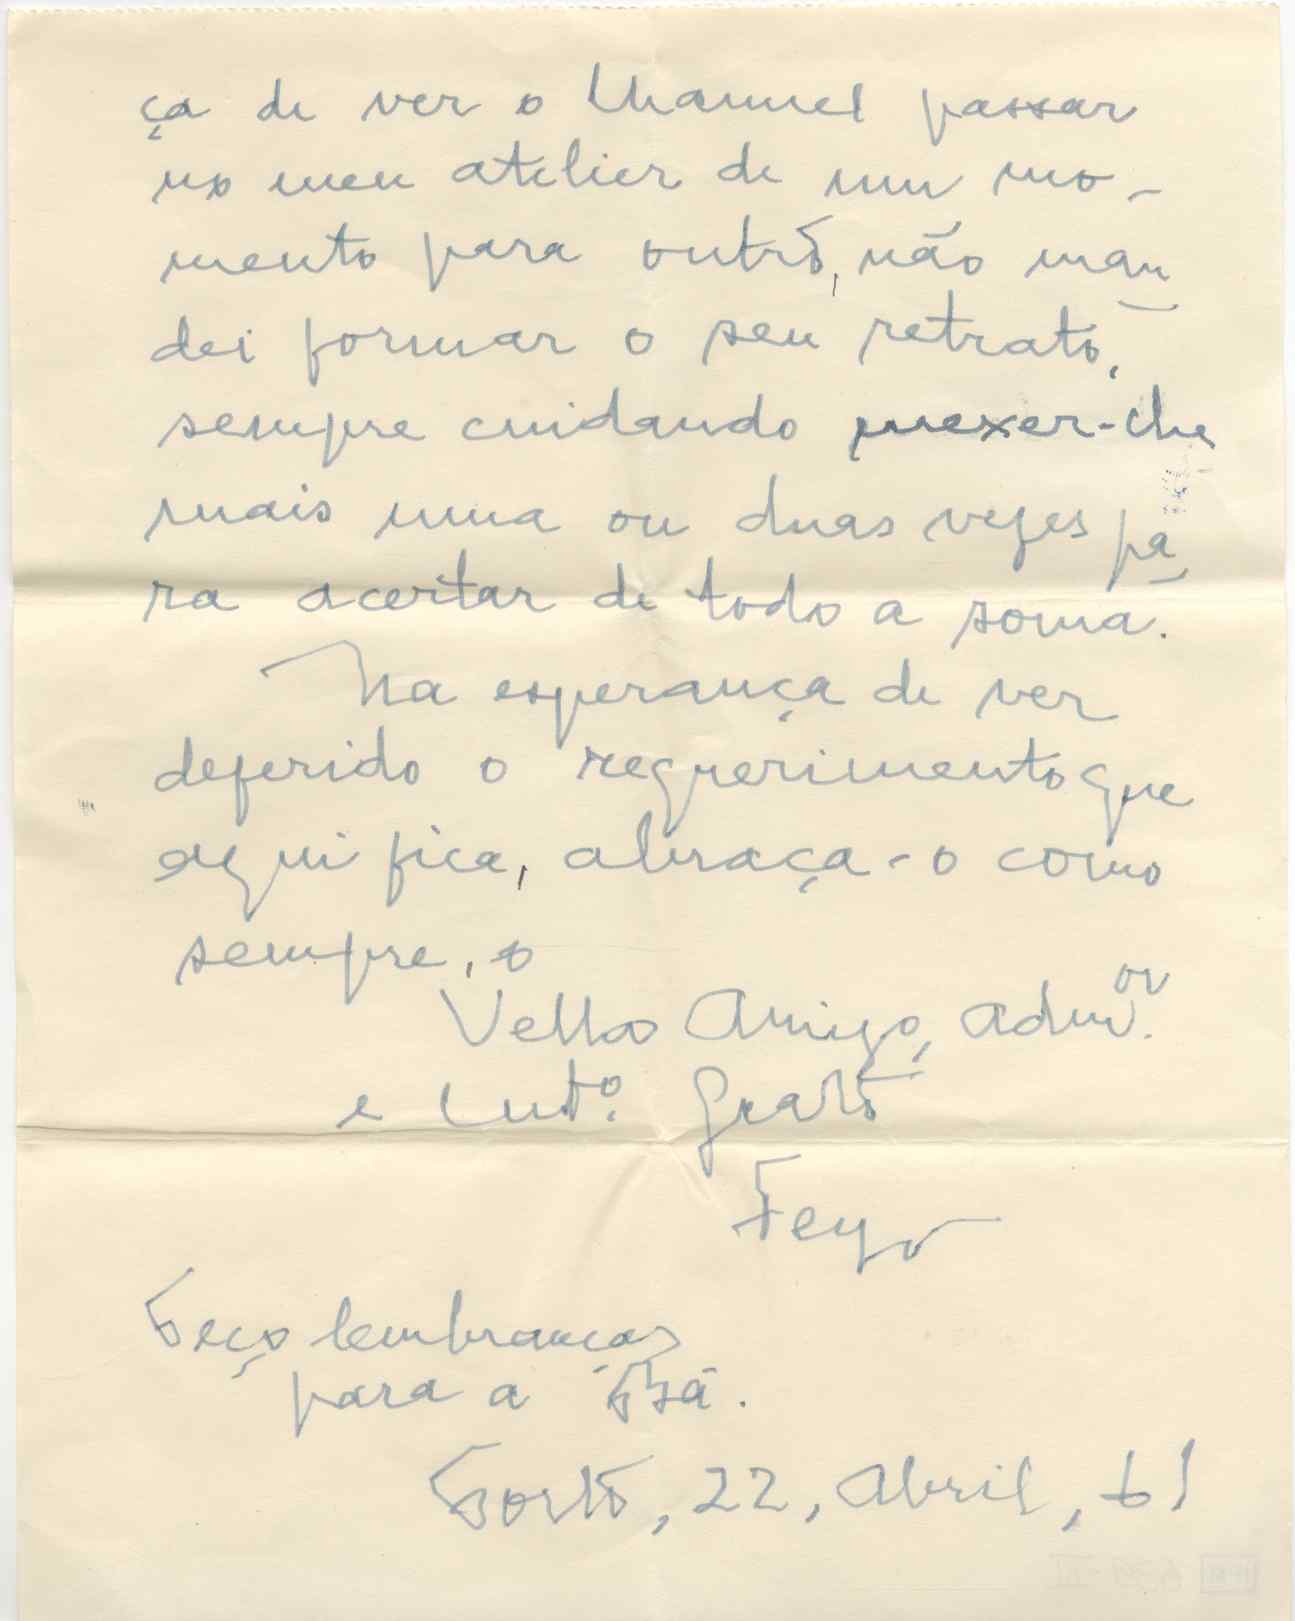 ça de ver o Manuel passar
no meu atelier de um mo-
mento para outro, não man
dei formar o seu retrato,
sempre cuidando mexer-lhe
mais uma ou duas vezes pa
ra acertar de todo a soma.
Na esperança de ver
deferido o requerimento que
aqui fica, abraça-o como
sempre, o
Velho Amigo, admor.
e mtº. Grato
Feyo
Peço lembranças
para a
Porto, 22, Abril, 61